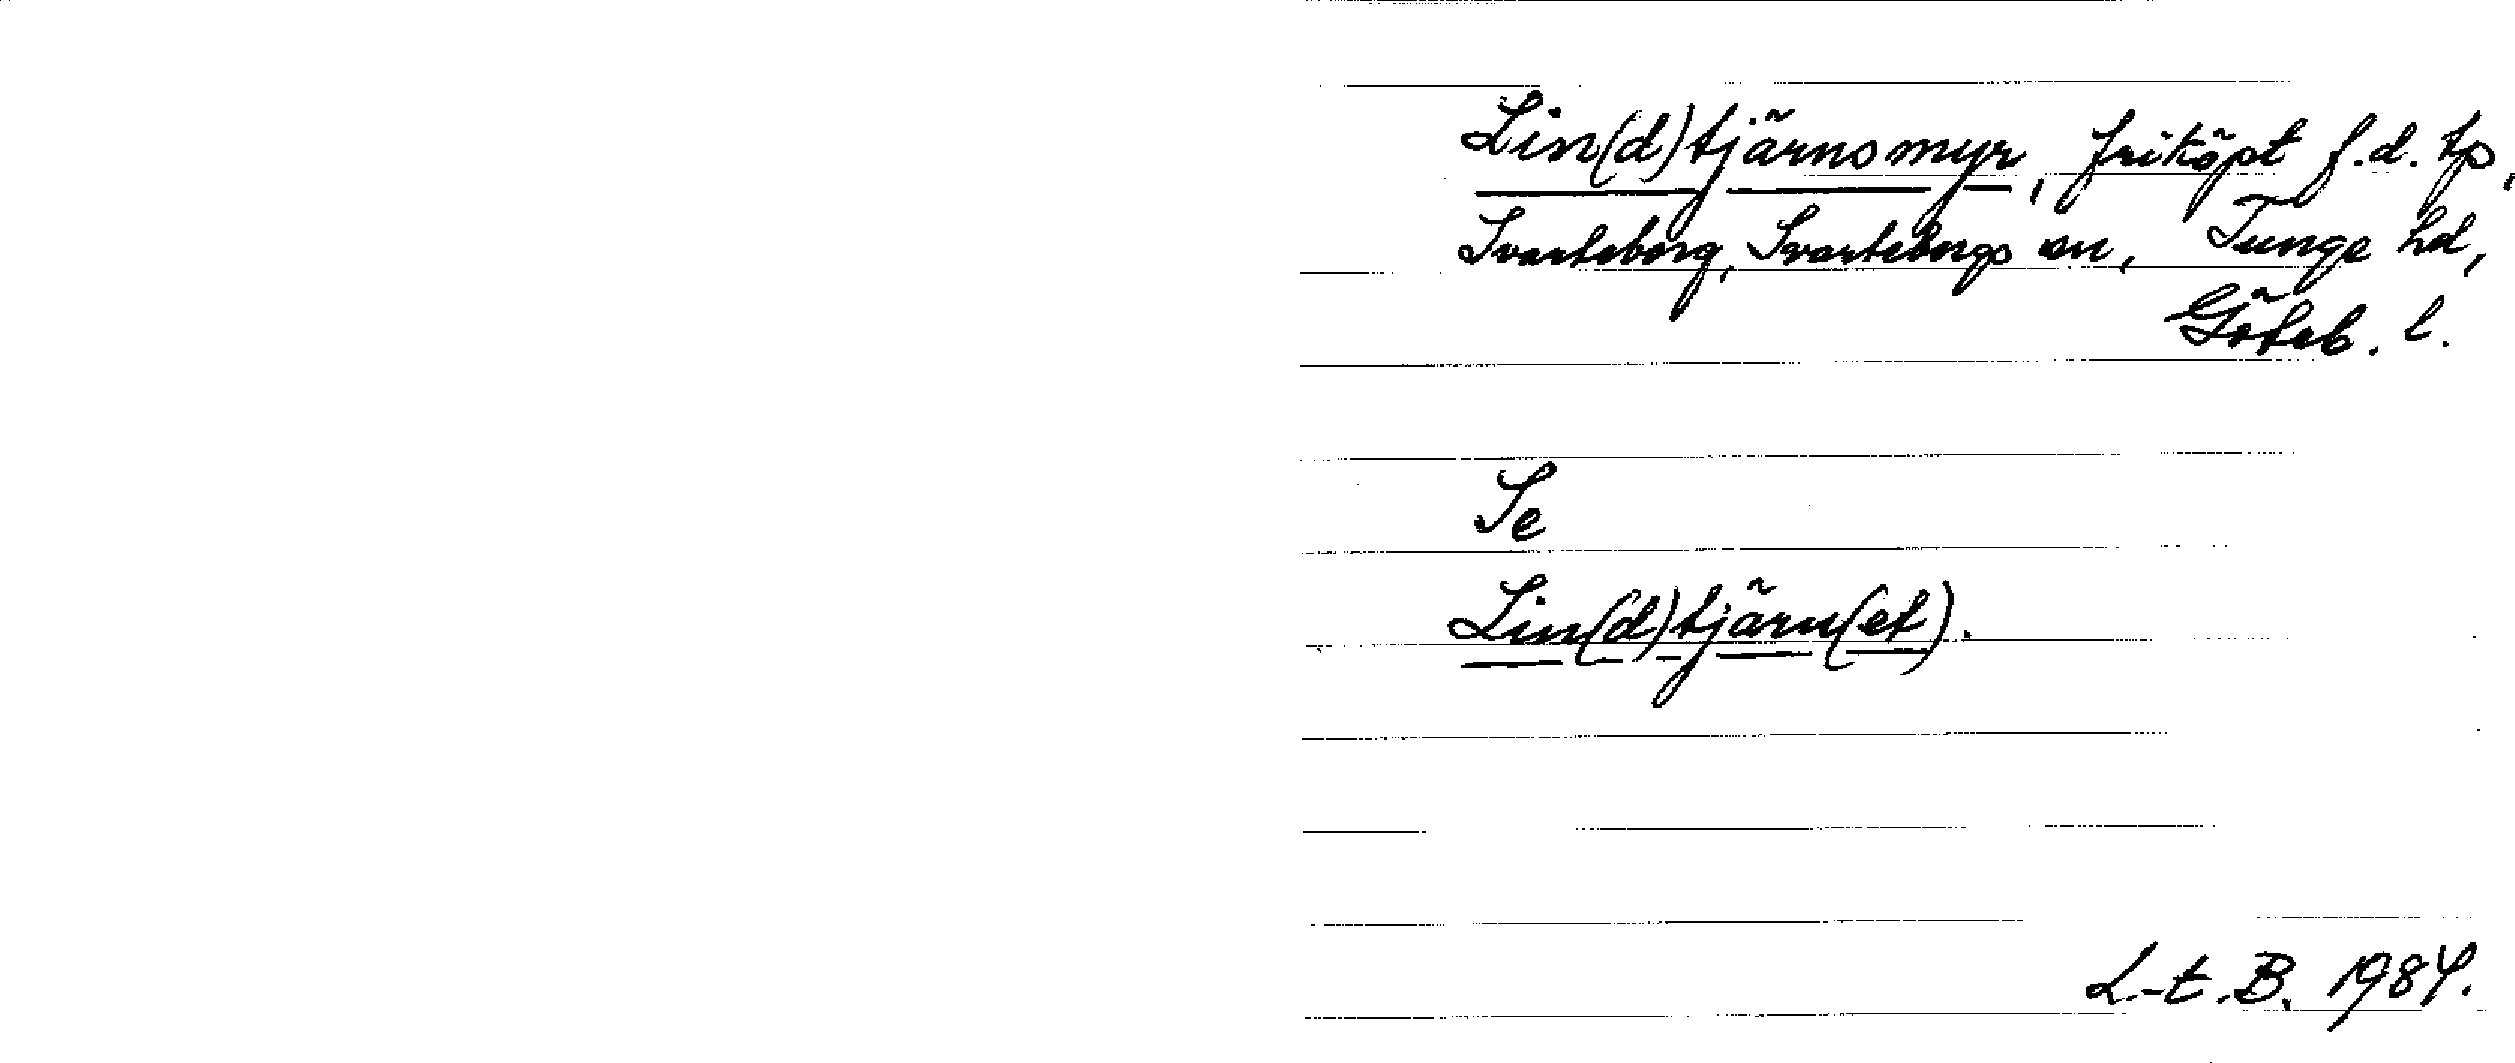 Lin(d)tjärnsmyr, friköpt f.d. tp,
Svarteborg, Svarteborgs sn, Tunge hd,
Göteb. l.
Se
Lin(d)tjärn(et).
L-t. B. 1984.